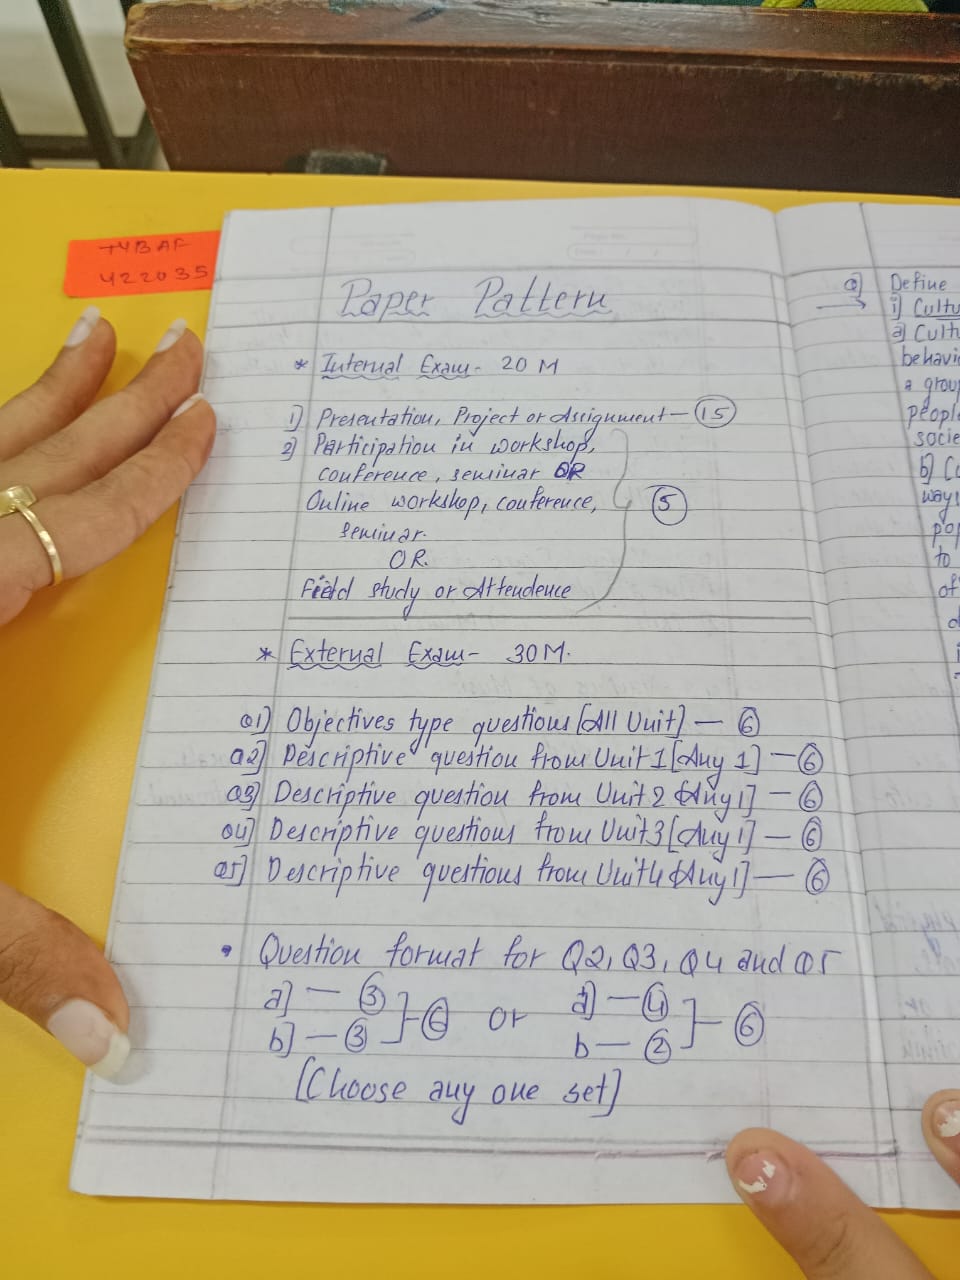 TYBAF
422035
Paper Pattern
* Internal Exam - 20 M
1] Presentation, Project or Assignment — 15
2] Participation in workshop,
conference, seminar OR
Online workshop, conference,
seminar.
OR.
Field study or Attendence
5
* External Exam - 30 M.
Q1] Objectives type questions [All Unit] — 6
Q2] Descriptive question from Unit 1 [Any 1] — 6
Q3] Descriptive question from Unit 2 [Any 1] — 6
Q4] Descriptive questions from Unit 3 [Any 1] — 6
Q5] Descriptive questions from Unit 4 [Any 1] — 6
• Question format for Q2, Q3, Q4 and Q5
a] — 3 } - 6 or a] — 4 ] - 6
b] — 3 b — 2
[Choose any one set]
Q] Define
→ i] Cultu
a] Cultu
behavi
a group
people
socie
b] Cu
way
pop
to
of